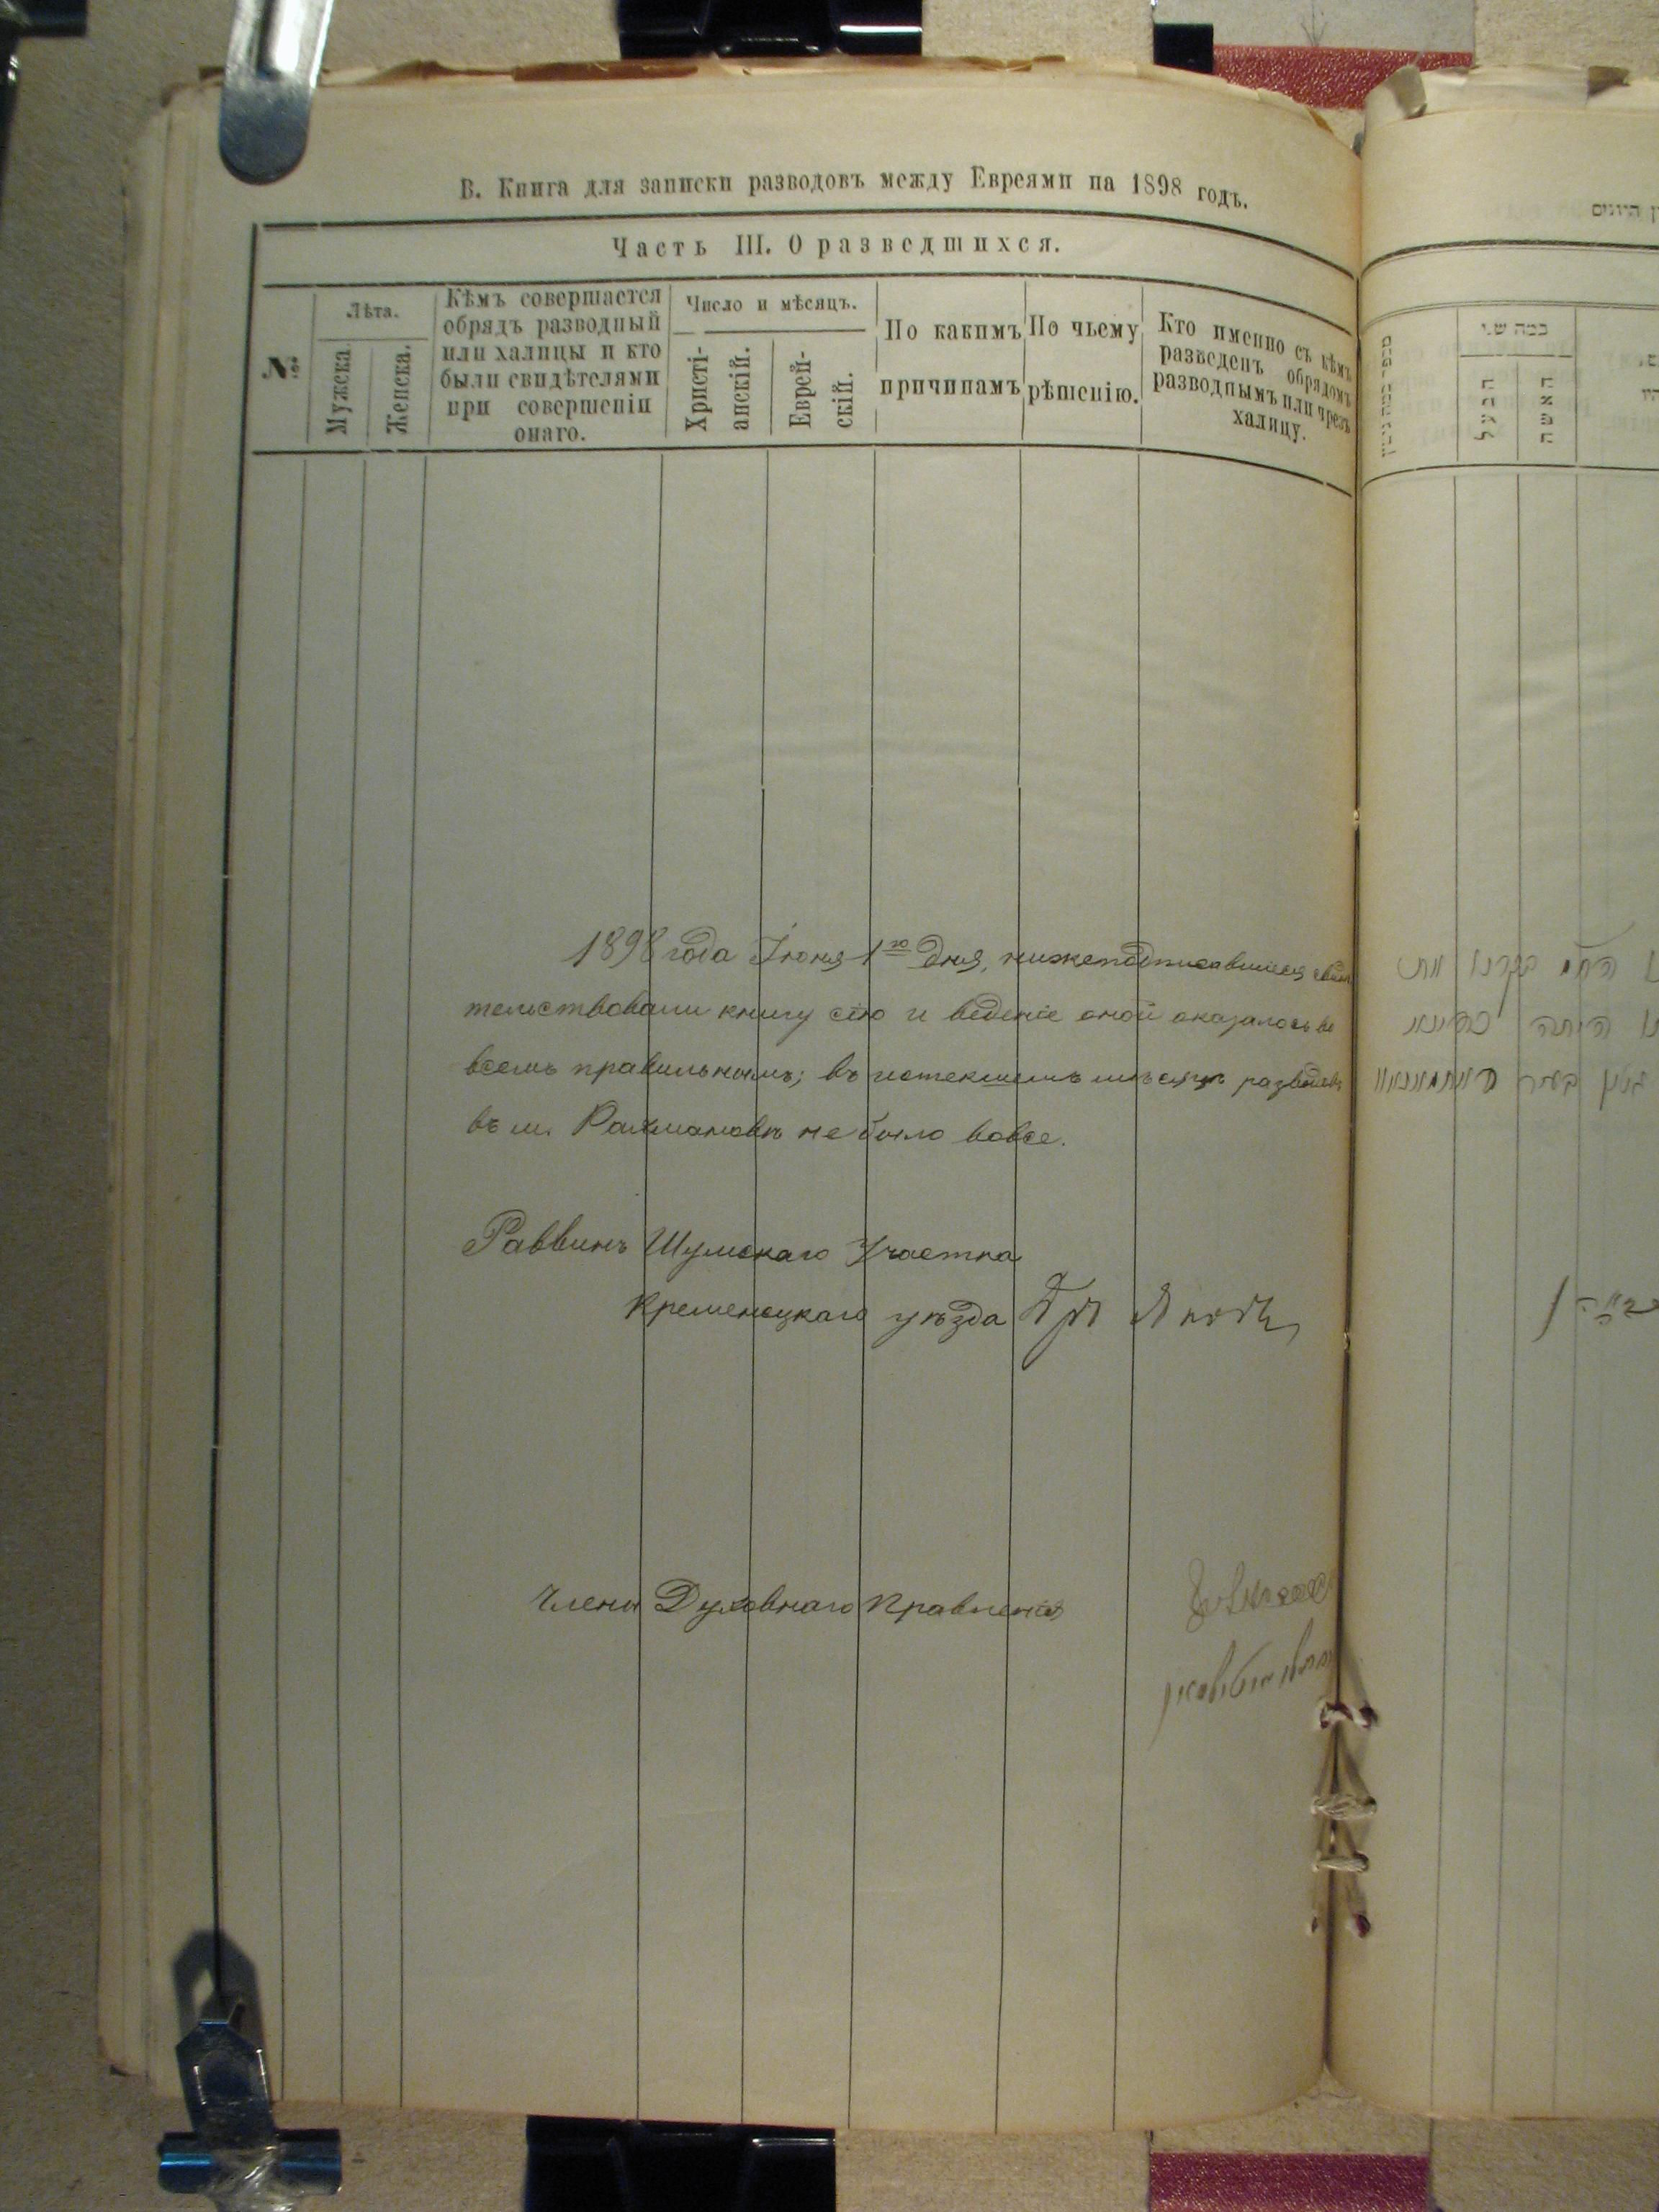 В. Книга для записки разводовъ между Евреями на 1898 годъ.
Часть III. О разведшихся.
№
Лѣта.
Мужеска
Женска.
Кѣмъ совершается
обрядъ разводный
или халицы и кто
были свидѣтелями
при совершеніи
онаго.
Число и мѣсяцъ.
Христі-
анскій.
Еврей-
скій.
По какимъ
причинамъ
По чьему
рѣшенію.
Кто именно съ кѣмъ
разведенъ обрядомъ
разводнымъ или чрезъ
халицу.
1898 года Іюня 1го дня, нижеподписавшіеся свидѣ
тельствовали книгу сію и веденіе оной оказалось во
всемъ правильнымъ; въ истекшемъ мѣсяцѣ разводовъ
въ м. Рахмановкѣ не было вовсе.
Раввинъ Шумскаго Участка
Кременецкаго уѣзда
Члены Духовнаго Правленія
כמה שני
הבעל
האשה